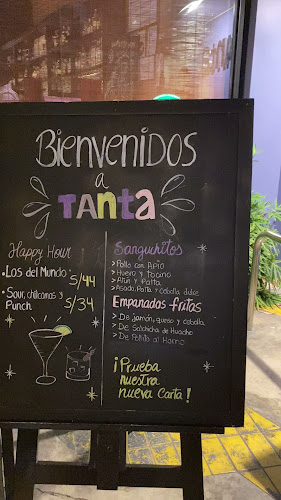 Bienvenidos
a
TANTA
Happy Hour
• Los del Mundo S/44
• Sour, chilcanos y
Punch. S/34
Sanguchitos
> Pollo con Apio
> Huevo y Tocino
> Atún y Palta
> Asado, Palta y cebolla dulce
Empanadas fritas
> De jamón, queso y cebolla
> De Salchicha de Huacho
> De Pollito al Horno
¡Prueba
nuestra
nueva Carta!